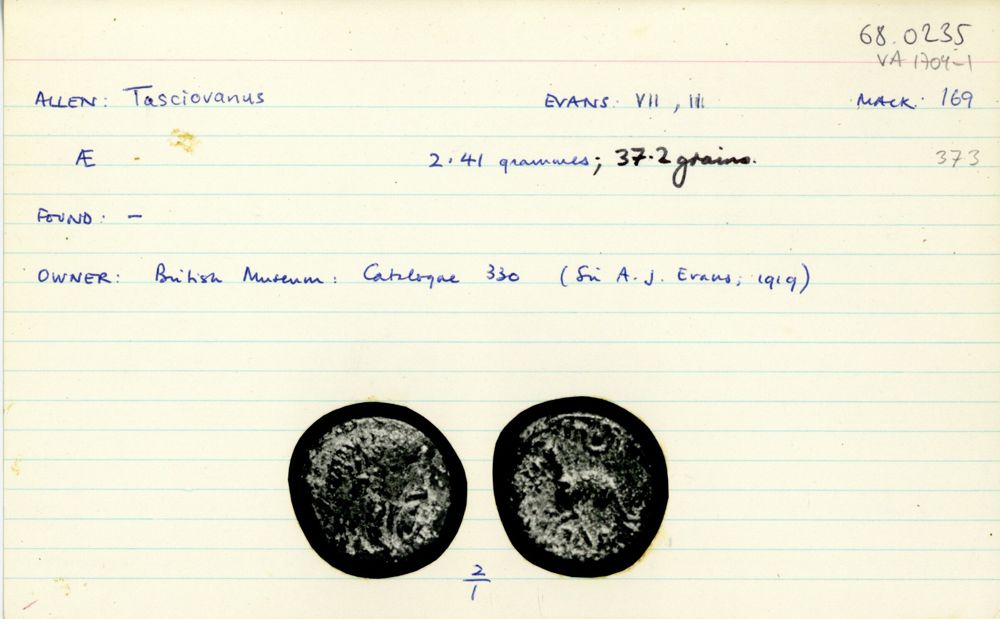 68.0235
VA 1704-1
ALLEN: Tasciovanus EVANS: VII, III MACK: 169
Æ 2.41 grammes; 37.2 grains. 373
FOUND: –
OWNER: British Museum: Catalogue 330 (Sir A. J. Evans, 1919)
2/1